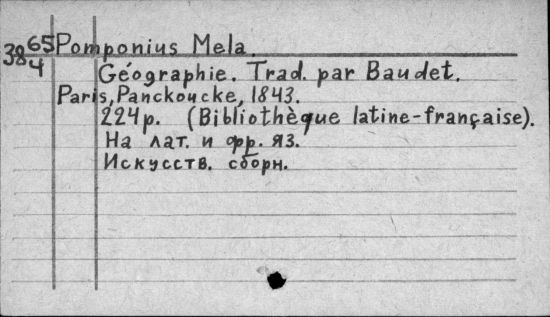 38 65/4 Pomponius Mela.
Géographie. Trad. par Baudet.
Paris, Panckoucke, 1843.
224 p. (Bibliothèque latine-française).
На лат. и фр. яз.
Искусств. сборн.